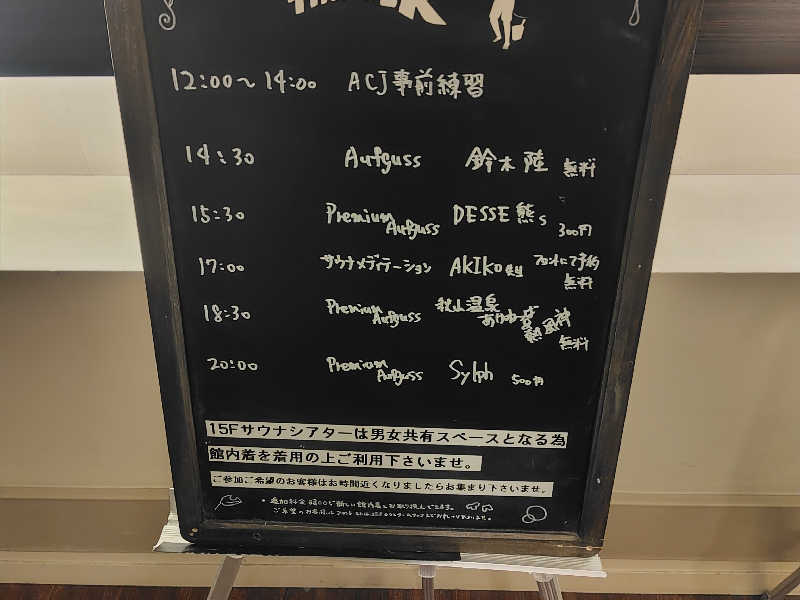 12:00〜14:00 ACJ事前練習
14:30 Aufguss 鈴木 陸 無料
15:30 Premium Aufguss DESSE熊s 300円
17:00 サウナメディテーション AKIKO フロントにて予約 無料
18:30 Premium Aufguss 秋山温泉 熱風神 無料
20:00 Premium Aufguss Sylph 500円
15Fサウナシアターは男女共有スペースとなる為
館内着を着用の上ご利用下さいませ。
ご参加ご希望のお客様はお時間近くなりましたらお集まり下さいませ。